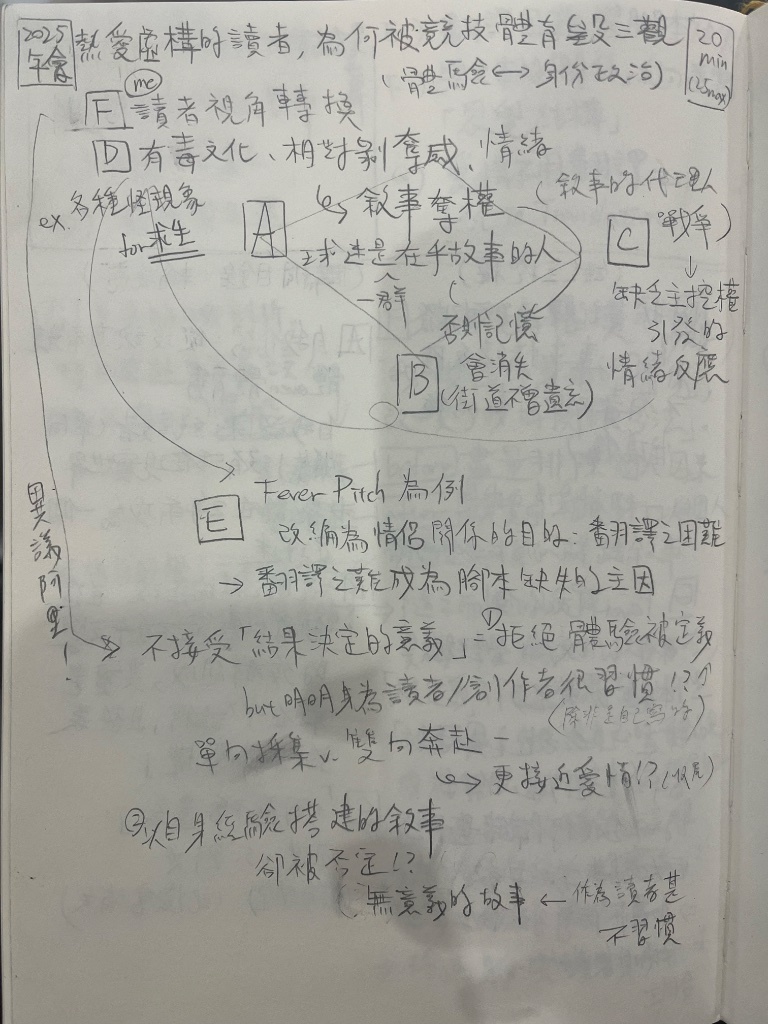 2025 年會
熱愛虛構的讀者，為何被競技體育毀三觀
20 min (25max)
(體驗 ↔ 身份政治)
F 讀者視角轉換 (me)
D 有毒文化、相對剝奪感、情緒
ex. 各種怪現象
for 求生
A
↳ 敘事奪權
(敘事的代理人
戰爭)
C
球迷是在乎故事的人
一群
↓
缺乏主控權
引發的
情緒反應
B
(否則記憶
會消失
(街道不會遺忘)
E Fever Pitch 為例
改編為情侶關係的目的：翻譯之困難
→ 翻譯之難成為腳本缺失的主因
異議阿里！
不接受「結果決定的意義」= ①拒絕體驗被定義
but 明明身為讀者/創作者很習慣!?↑
(除非是自己寫的)
單向採集 v. 雙向奔赴 –
↳ 更接近愛情!?
②以自身經驗搭建的敘事
卻被否定!?
(無意義的故事 ← 作為讀者甚
不習慣